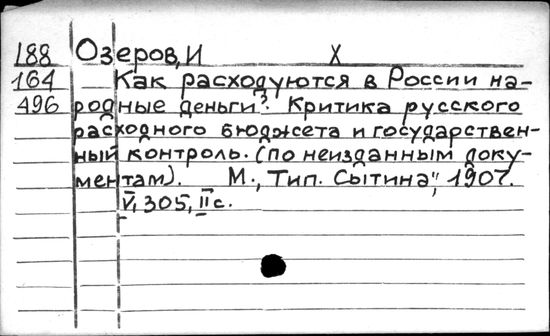 188 Озеров, И X
164 Как расходуются в России на-
496 родные деньги? Критика русского
расходного бюджета и государствен-
ный контроль. (по неизданным доку-
ментам). М., Тип. Сытина", 1907.
V, 305, II с.